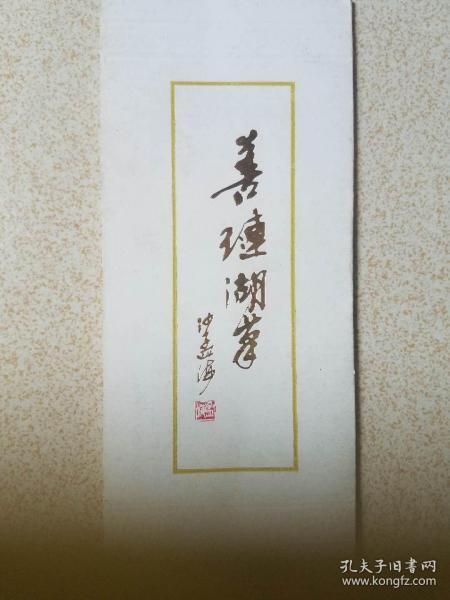 善琏湖笔
沙孟海
孔夫子旧书网
www.kongfz.com